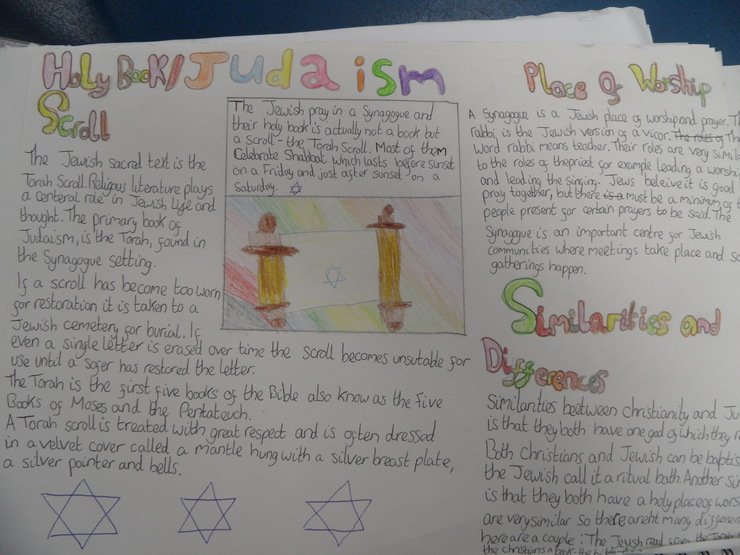 Holy Book/Judaism
Scroll
The Jewish sacred text is the
Torah Scroll. Religous literature plays
a centeral role in Jewish life and
thought. The primary book of
Judaism, is the Torah, found in
the Synagogue setting.
If a scroll has become too worn
for restoration it is taken to a
Jewish cemetery for burial. If
even a single letter is erased over time the scroll becomes unsutable for
use until a sofer has restored the letter.
The Torah is the first five books of the Bible also know as the five
Books of Moses and the Pentateuch.
A Torah scroll is treated with great respect and is often dressed
in a velvet cover called a mantle hung with a silver breast plate,
a silver pointer and bells.
The Jewish pray in a Synagogue and
their holy book is actually not a book but
a scroll - the Torah Scroll. Most of them
Celebrate Shabbat which lasts before sunset
on a Friday and just after sunset on a
Saturday.
Place of Worship
A Synagogue is a Jewish place of worship and prayer. T
rabbi, is the Jewish version of a vicor. The roles of The
word rabbi means teacher. Their roles are very simila
to the roles of the priest for example leading a worshi
and leading the singing. Jews beleive it is good
pray together, but there is a must be a minimum of t
people present for certain prayers to be said. The
Synagogue is an important centre for Jewish
communities where meetings take place and so
gatherings happen.
Similarities and
Differences
Similarities beetween christianity and Ju
is that they both have one god of which they r
Both christians and Jewish can be baptis
the Jewish call it a ritual bath. Another si
is that they both have a holy place of wors
are very similar so there arent many differen
here are a couple: The Jewish read from the Torah
the christians